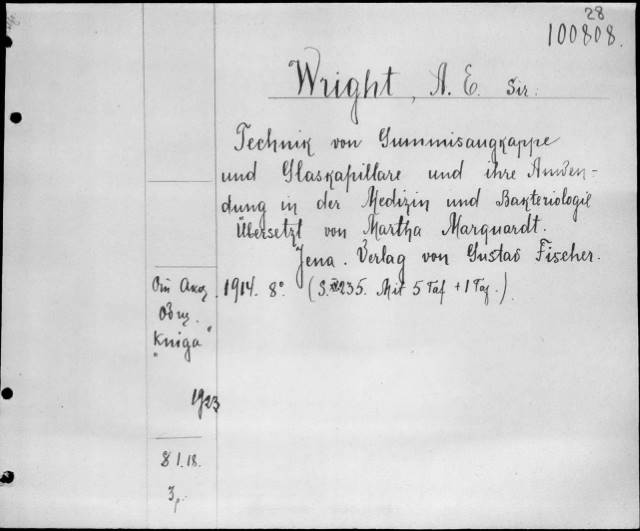 28
100808.
Wright, A. E. Sir.
Technik von Gummisaugkappe
und Glaskapillare und ihre Anwen-
dung in der Medizin und Bakteriologie
Übersetzt von Martha Marquardt.
Jena. Verlag von Gustav Fischer.
1914. 8° (S. 235. Mit 5 Taf + 1 Taf.)
От Акц.
Общ.
"Kniga"
1923
8 1.18.
3